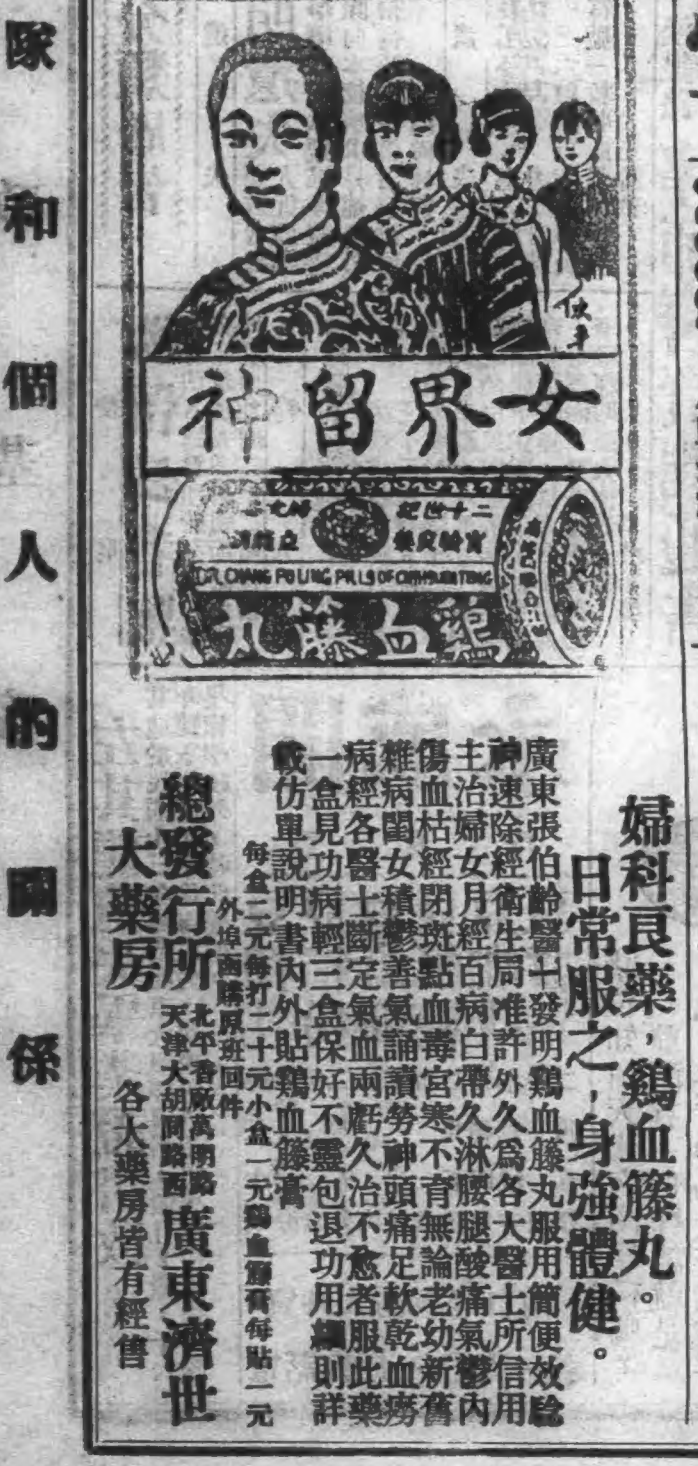 女界留神
二十世紀
實驗良藥
DR. CHANG PO LING PILLS OF
鷄血籐丸
婦科良藥，鷄血籐丸。
日常服之，身強體健。
廣東張伯齡醫士發明鷄血籐丸服用簡便效驗
神速除經衛生局准許外久爲各大醫士所信用
主治婦女月經百病白帶久淋腰腿酸痛氣鬱內
傷血枯經閉斑點血毒宮寒不育無論老幼新舊
雜病閨女積鬱善氣誦讀勞神頭痛足軟乾血癆
病經各醫士斷定氣血兩虧久治不愈者服此藥
一盒見功病輕三盒保好不靈包退功用細則詳
載仿單說明書內外貼鷄血籐膏
每盒二元每打二十元小盒一元鷄血籐膏每貼一元
外埠函購原班回件
總發行所
北平香廠萬明路
天津大胡同路西
廣東濟世
大藥房
各大藥房皆有經售
隊和個人的關係